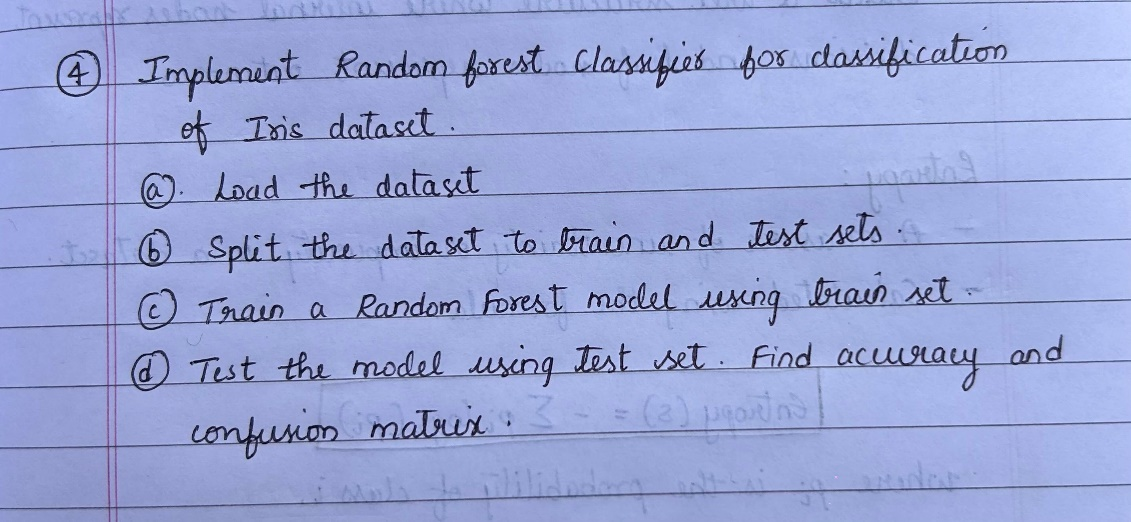 ④ Implement Random forest Classifier for classification
of Iris dataset.
ⓐ. Load the dataset
ⓑ Split the dataset to train and test sets.
ⓒ Train a Random Forest model using train set.
ⓓ Test the model using test set. Find accuracy and
confusion matrix.